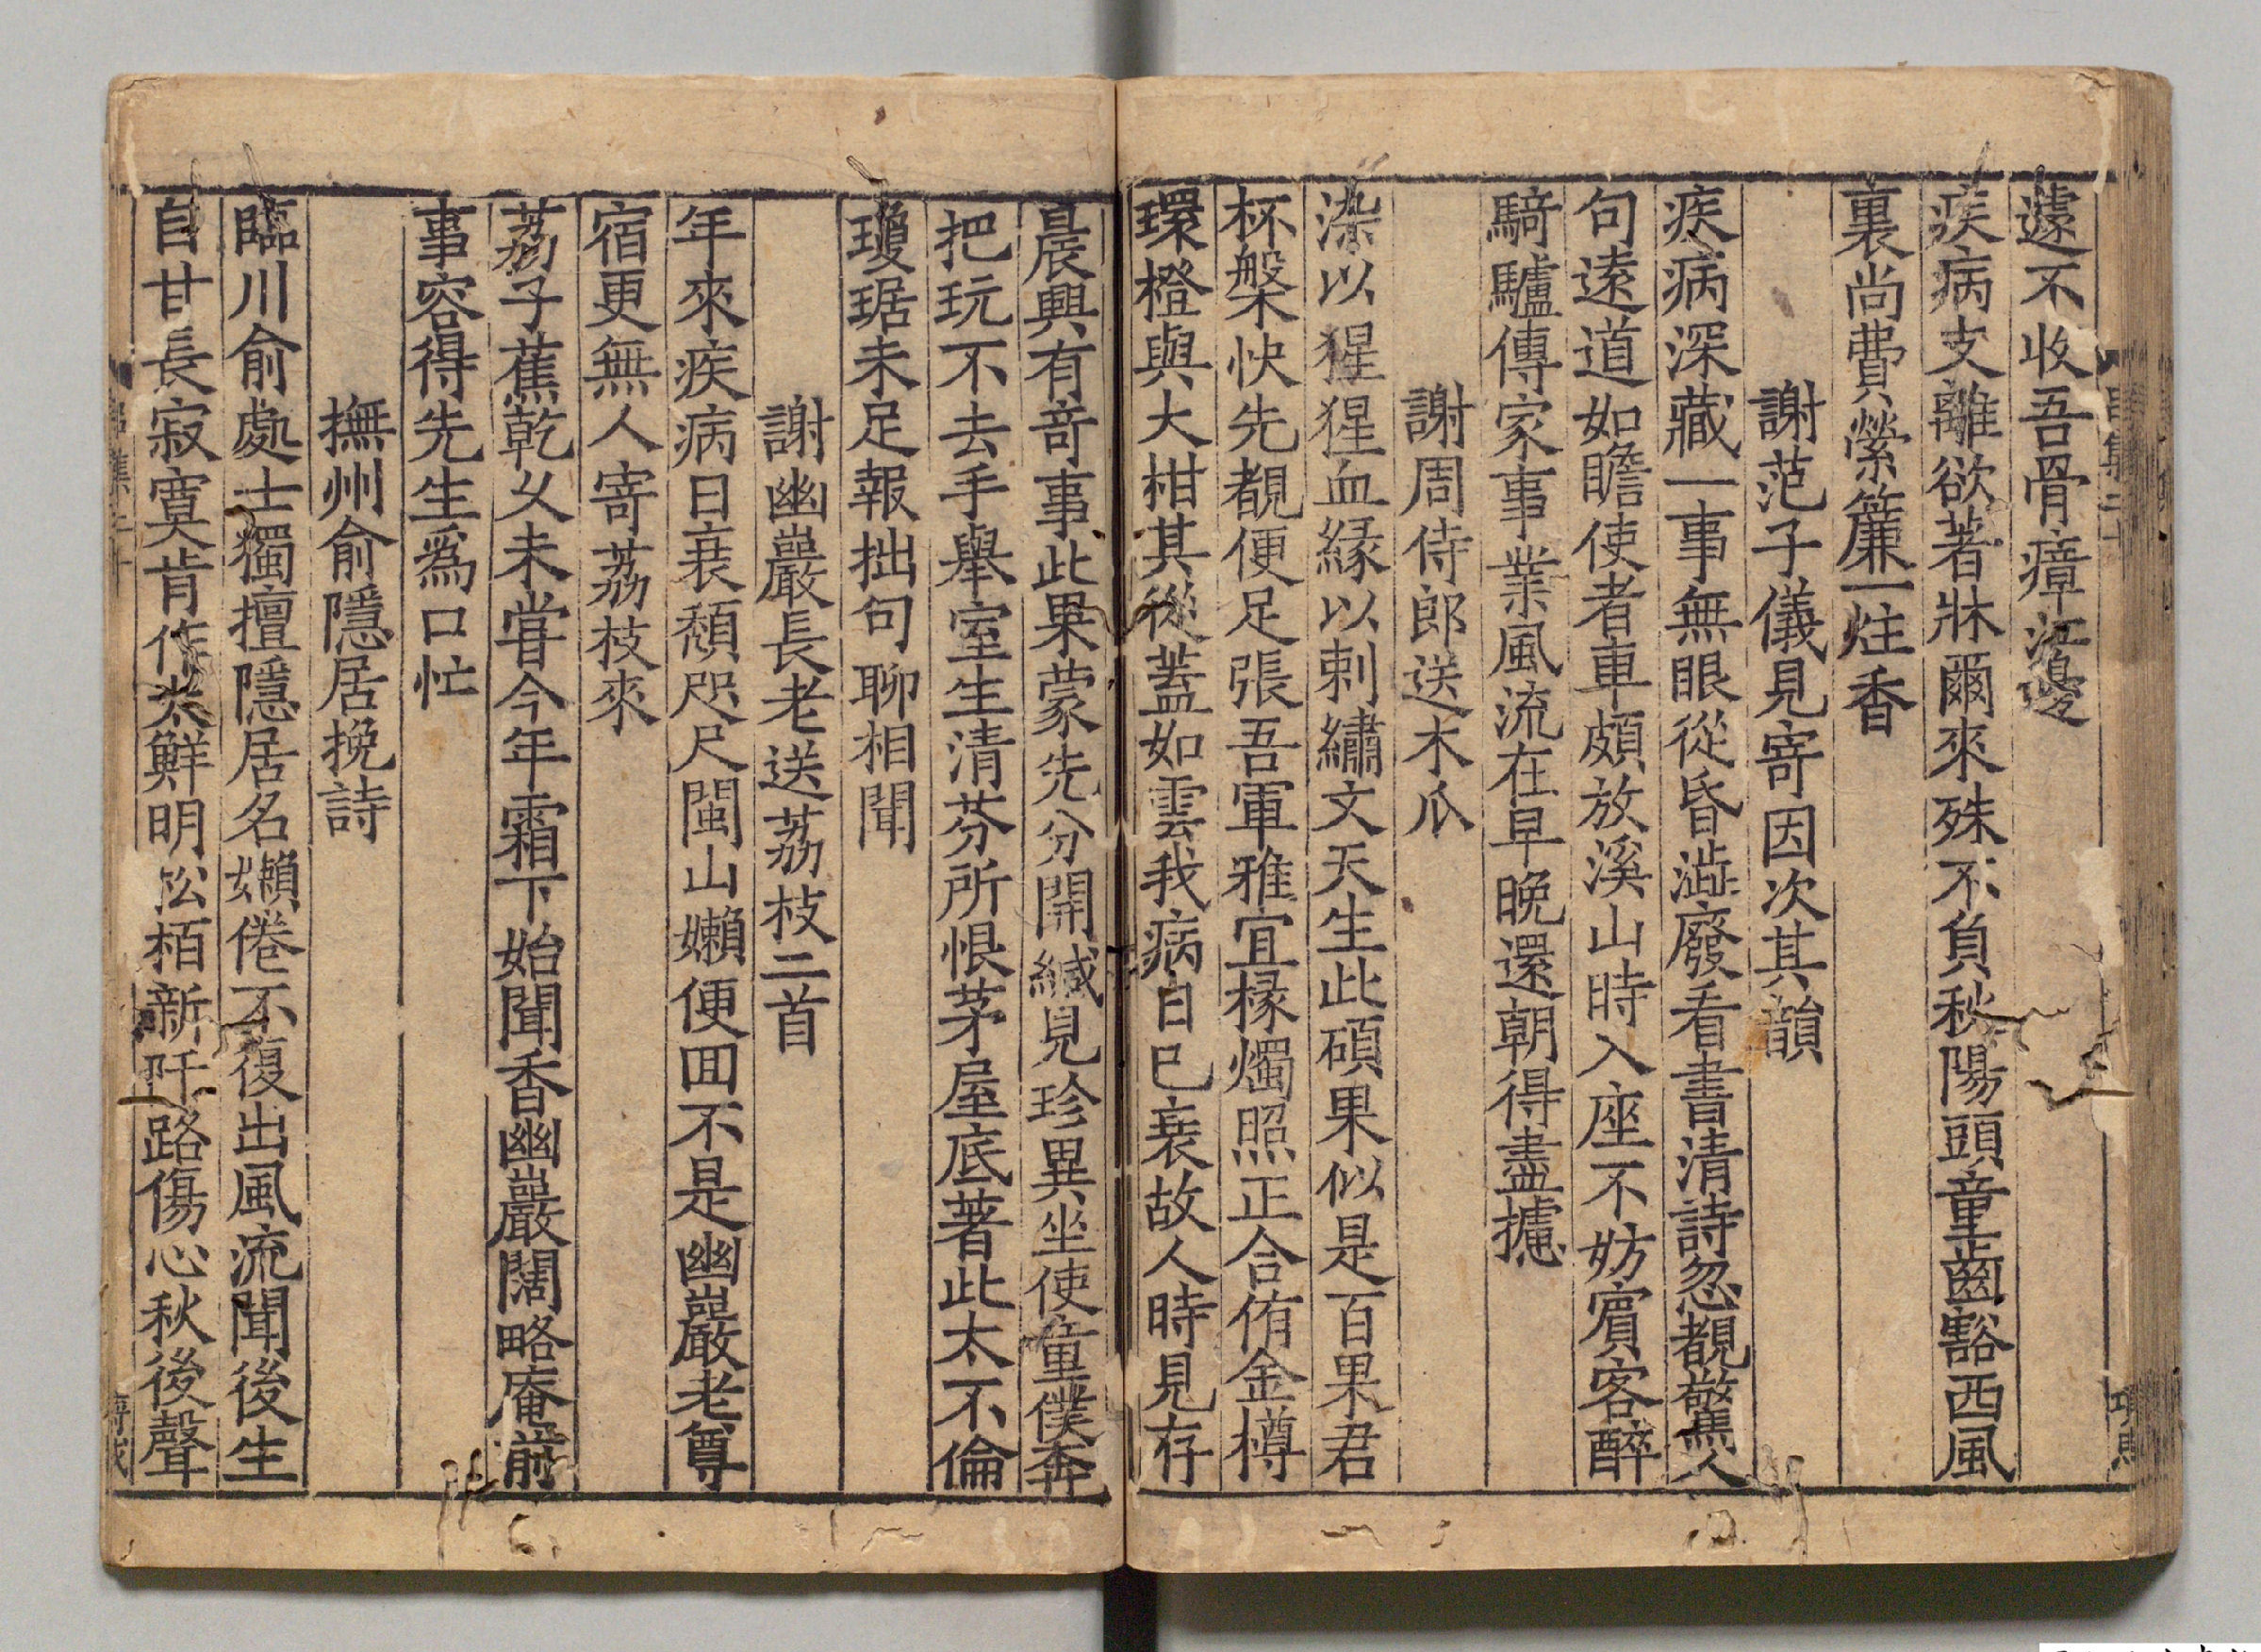 遽不收吾骨瘴江邊
疾病支離欲著牀爾來殊不負秋陽頭童齒豁西風
裏尚費縈簾一炷香
謝范子儀見寄因次其韻
疾病深藏一事無眼從昏澁廢看書清詩忽覩驚人
句遠道如瞻使者車頗放溪山時入座不妨賓客醉
騎驢傳家事業風流在早晚還朝得盡攄
謝周侍郎送木瓜
染以猩猩血緣以刺繡文天生此碩果似是百果君
杯槃快先覩便足張吾軍雅宜椽燭照正合侑金樽
環橙與大柑其從蓋如雲我病日已衰故人時見存
晨興有竒事此果蒙先分開緘見珍異坐使童僕奔
把玩不去手舉室生清芬所恨茅屋底著此太不倫
瓊琚未足報拙句聊相聞
謝幽巖長老送荔枝二首
年來疾病日衰頽咫尺閩山嬾便回不是幽巖老尊
宿更無人寄荔枝來
荔子蕉乾乆未嘗今年霜下始聞香幽巖闊略庵前
事容得先生爲口忙
撫州俞隱居挽詩
臨川俞處士獨擅隱居名嬾倦不復出風流聞後生
自甘長寂寞肯作太鮮明松栢新阡路傷心秋後聲